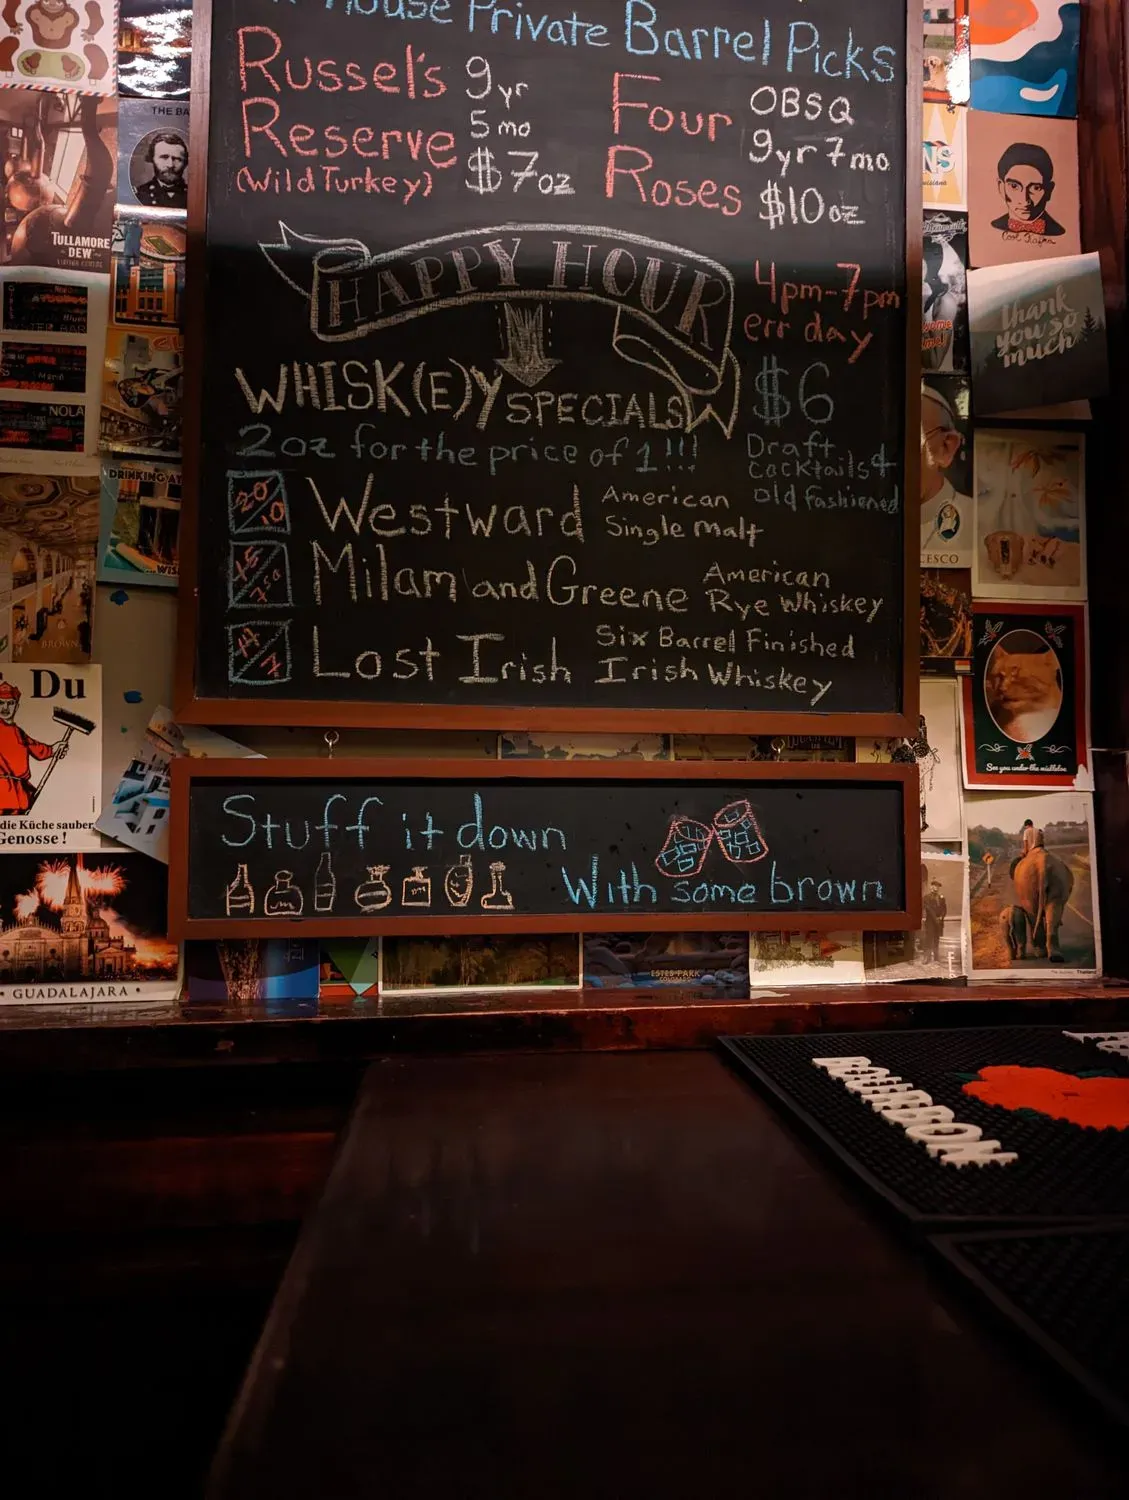 House Private Barrel Picks
Russel's 9yr
Reserve 5mo
(Wild Turkey) $7oz
Four OBSQ
Roses 9yr 7mo
$10oz
HAPPY HOUR
4pm-7pm
err day
WHISK(E)Y SPECIALS
2oz for the price of 1!!!
$6
Draft
cocktails+
old fashioned
Westward American
Single Malt
Milam and Greene American
Rye Whiskey
Lost Irish Six Barrel Finished
Irish Whiskey
Stuff it down
With some brown
TULLAMORE
DEW
THE BA
NOLA
DRINKING AT
BROWN
Du
die Küche sauber
Genosse!
GUADALAJARA
ESTES PARK
thank
you so
much
See you under the mistletoe
Thailand
BOURBON